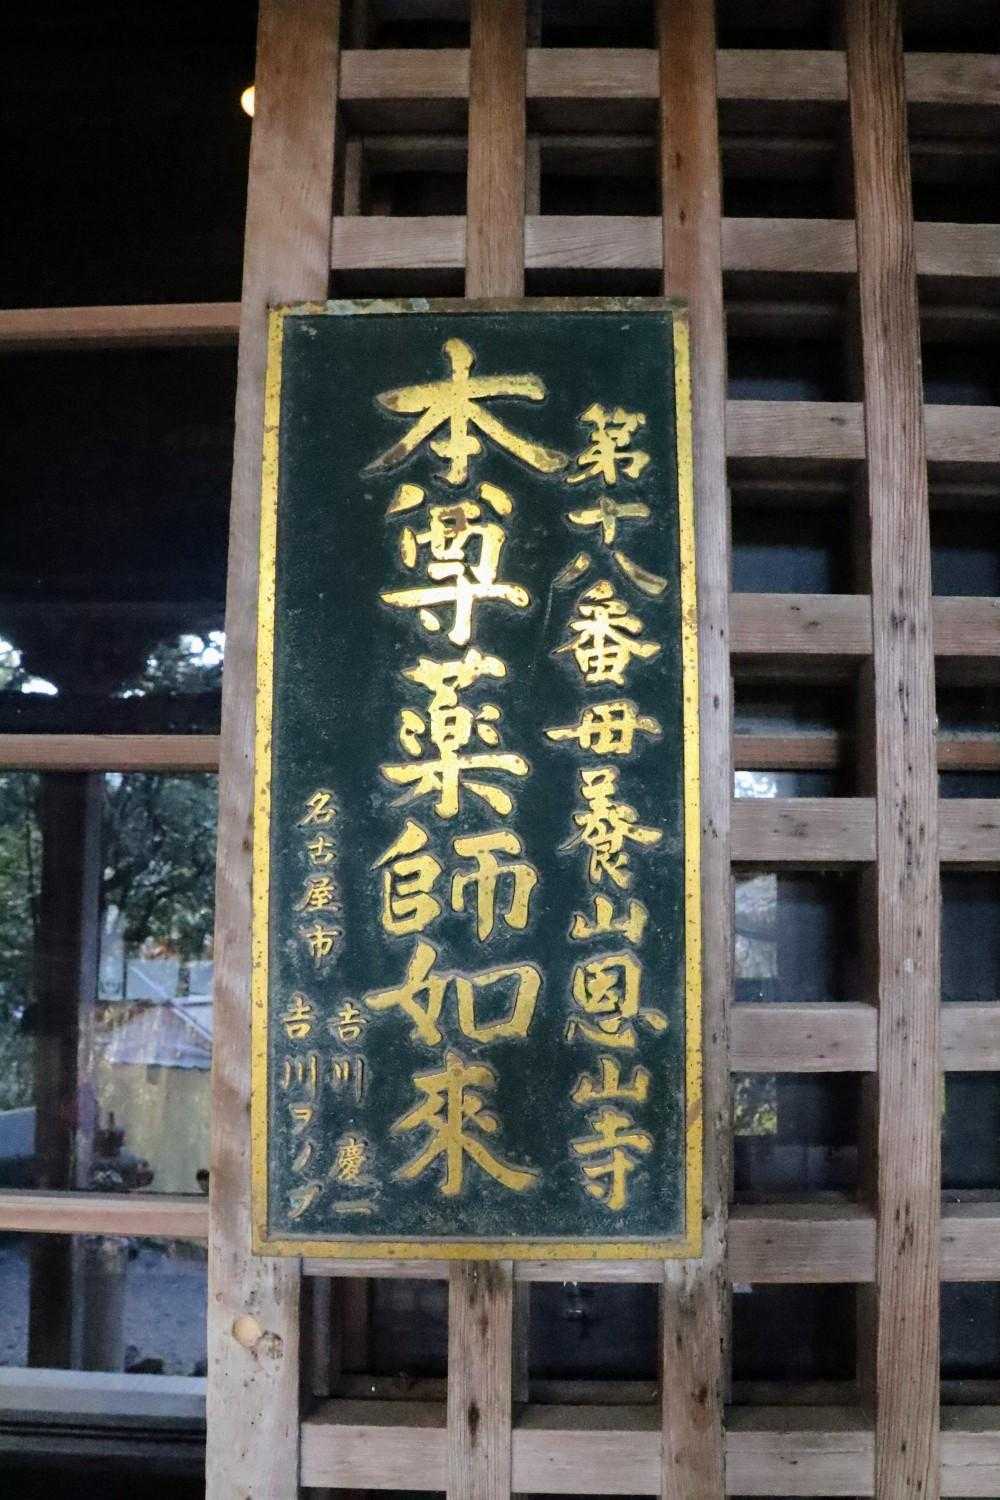 第十八番母養山恩山寺
本尊薬師如来
名古屋市
吉川慶一
吉川ヲノブ